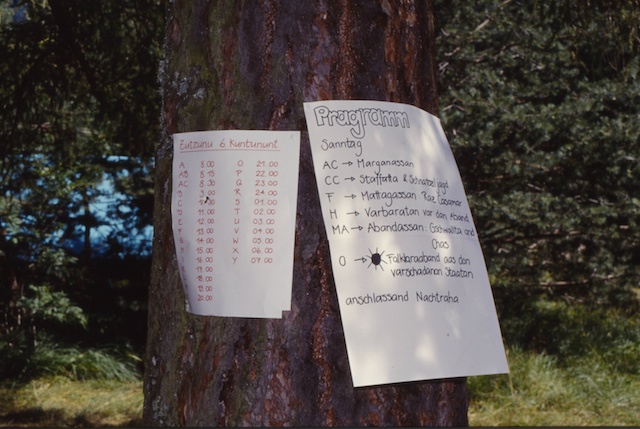 Eutzunu 6. Kuntununt
A 8.00 O 21.00
AB 8.15 P 22.00
AC 8.30 Q 23.00
B 9.00 R 24.00
C S 01.00
D 11.00 T 02.00
E 12.00 U 03.00
F 13.00 V 04.00
14.00 W 05.00
15.00 X 06.00
16.00 Y 07.00
17.00
18.00
19.00
20.00
Pragramm
Sanntag
AC → Marganassan
CC → Staffatta & Schnatzaljagd
F → Mattagassan
H → Varbaratan var dan Aband
MA → Abandassan: Gaschwalta and
Chas
O → Falklaraaband aas dan
varschadanan Staatan
anschlassand Nachtraha